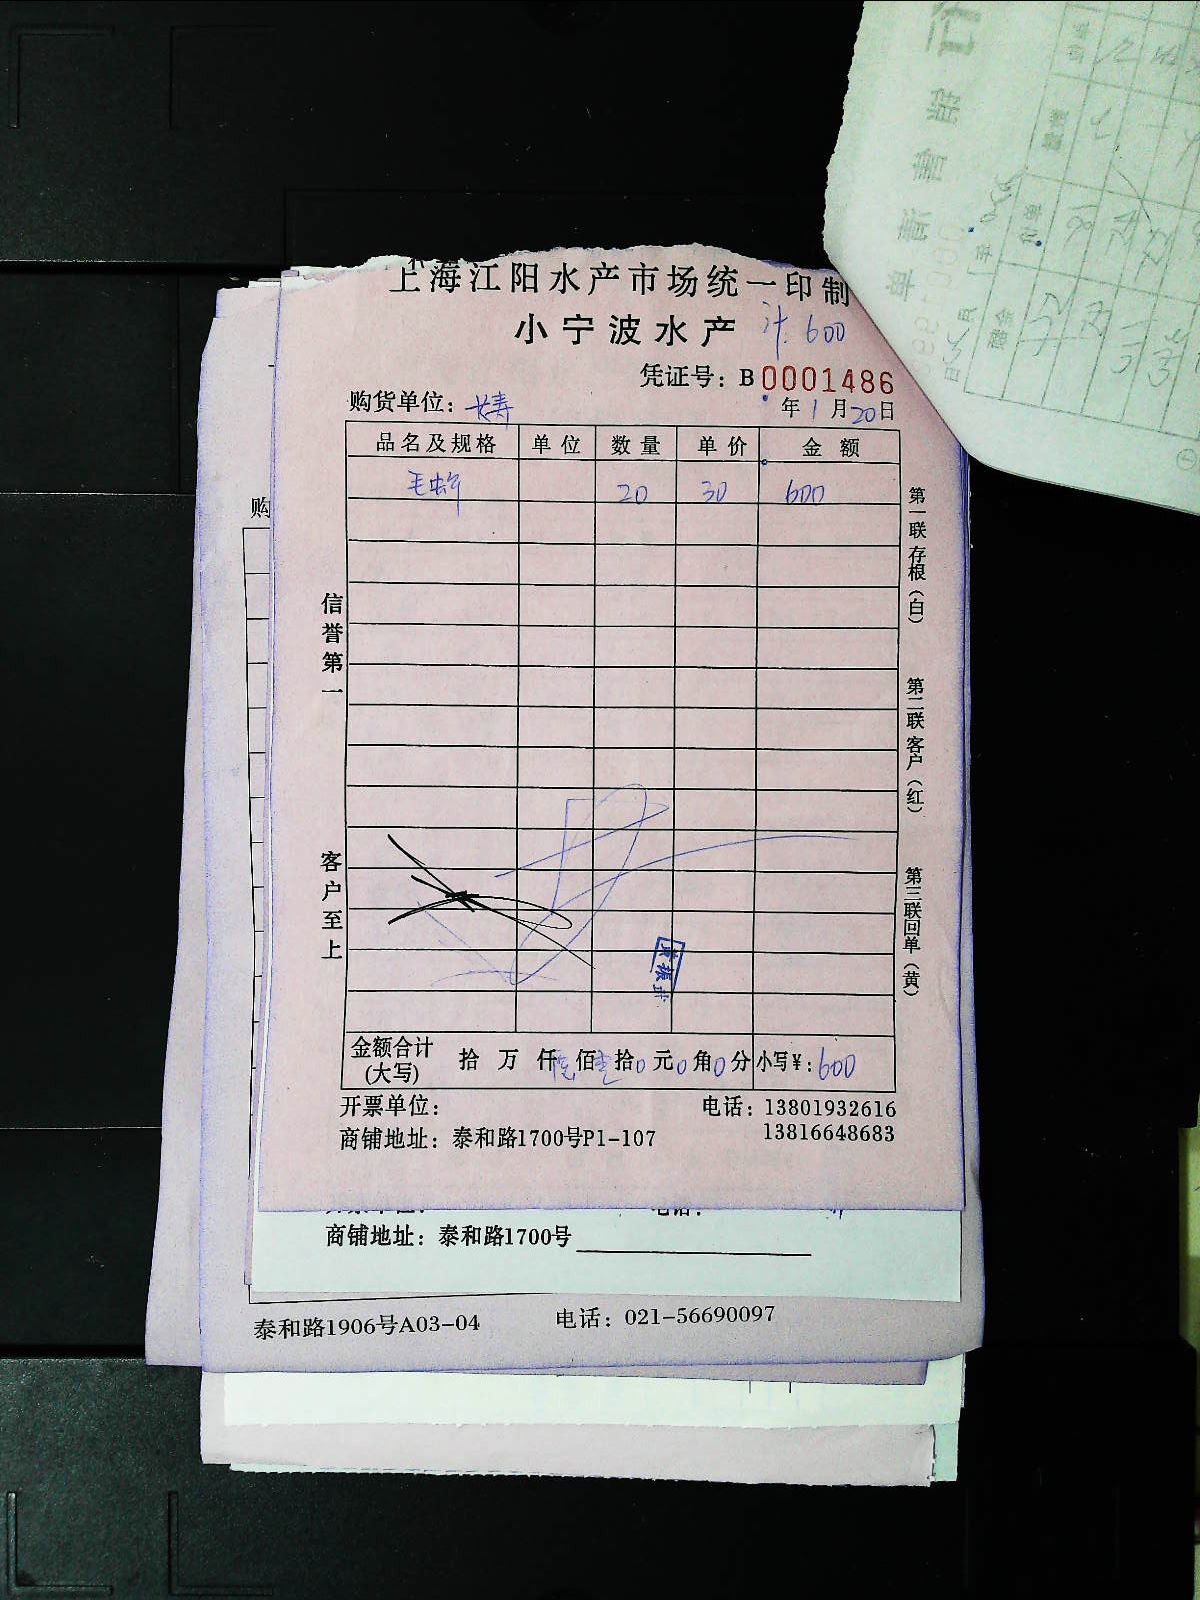 上海江阳水产市场统一印制
小宁波水产 计 600
凭证号：B 0001486
购货单位：长寿 年 1 月 20 日
品名及规格 单位 数量 单价 金额
毛蚶 20 30 600
信誉第一
客户至上
第一联存根（白）
第二联客户（红）
第三联回单（黄）
金额合计(大写) 拾 万 仟 陆 佰 零 拾 0 元 0 角 0 分 小写¥：600
开票单位： 电话：13801932616
商铺地址：泰和路1700号P1-107 13816648683
商铺地址：泰和路1700号
泰和路1906号A03-04 电话：021-56690097
购